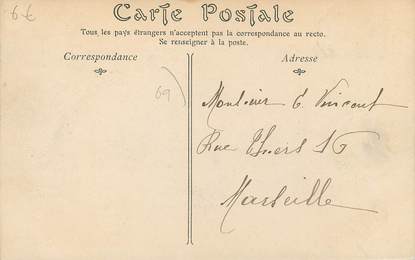 6€
Carte Postale
Tous les pays étrangers n'acceptent pas la correspondance au recto.
Se renseigner à la poste.
Correspondance
Adresse
69
Monsieur E. Vincent
Rue Thiers 16
Marseille